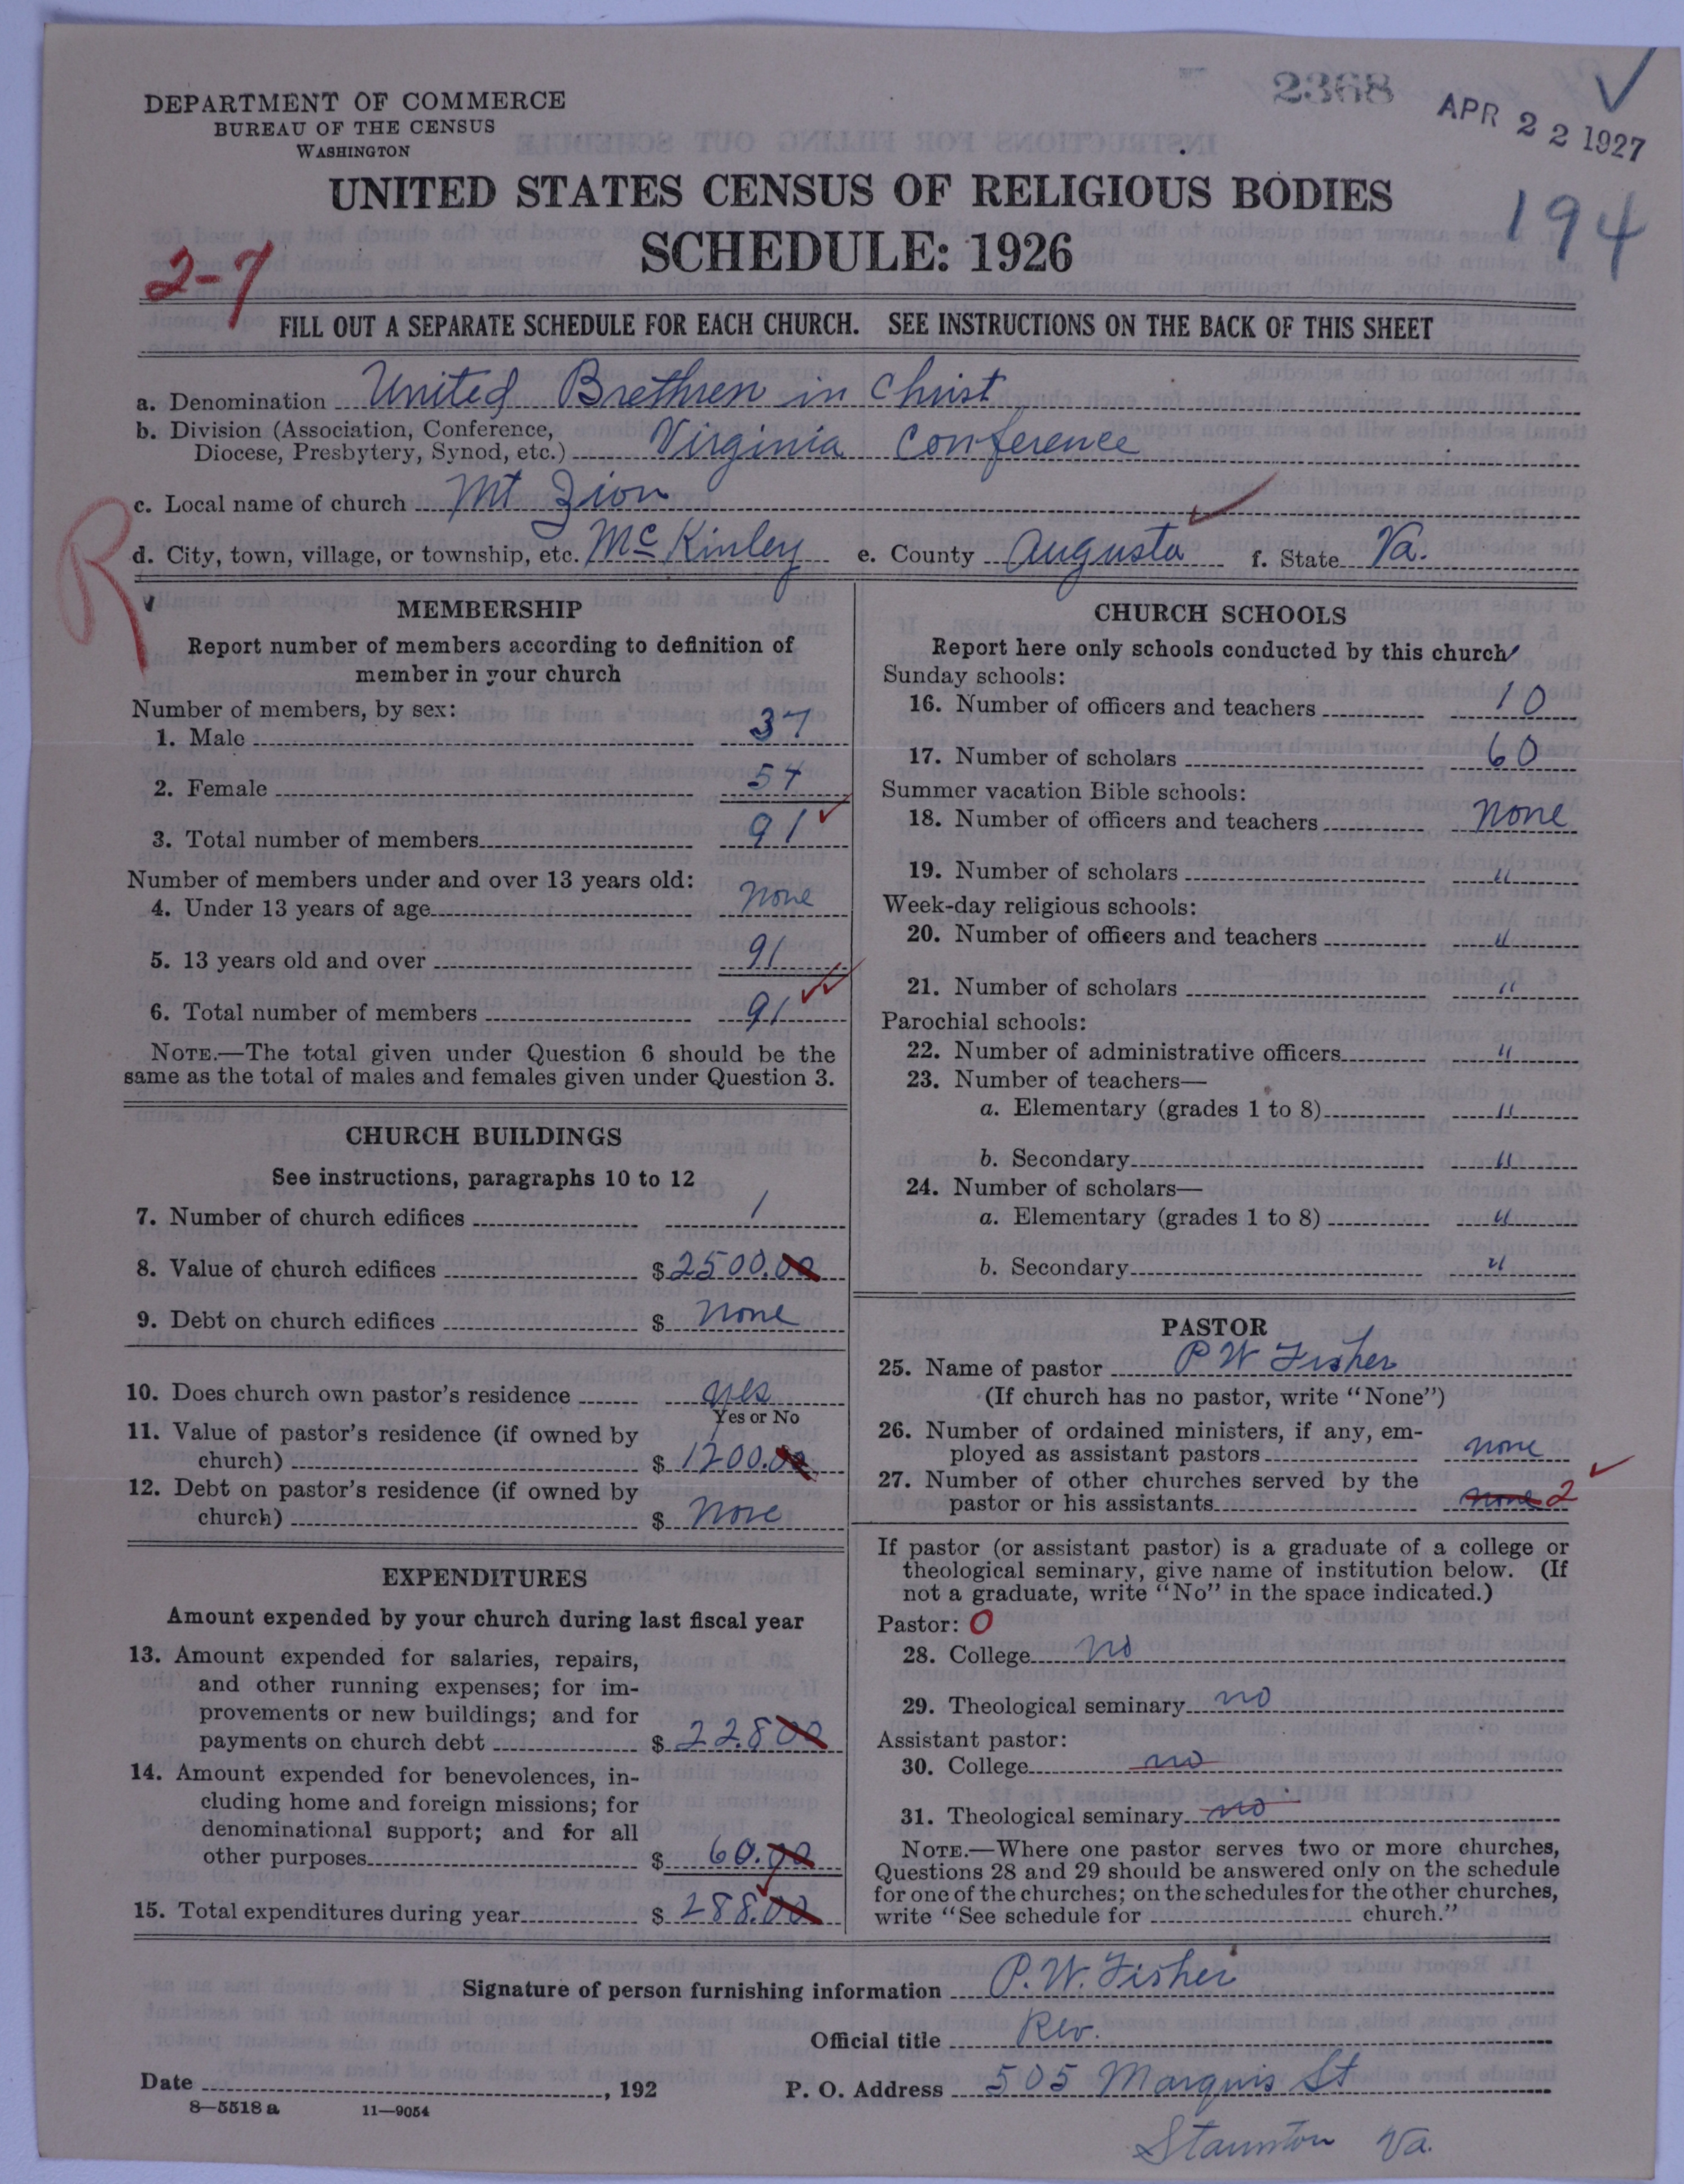 2368
APR 22 1927
DEPARTMENT OF COMMERCE
BUREAU OF THE CENSUS
WASHINGTON
194
UNITED STATES CENSUS OF RELIGIOUS BODIES
SCHEDULE: 1926
2-7
FILL OUT A SEPARATE SCHEDULE FOR EACH CHURCH. SEE INSTRUCTIONS ON THE BACK OF THIS SHEET
a. Denomination United Brethren in Christ
b. Division (Association, Conference,
Diocese, Presbytery, Synod, etc.) Virginia Conference
c. Local name of church Mt Zion
R
d. City, town, village, or township, etc. McKinley e. County Augusta f. State Va.
MEMBERSHIP
Report number of members according to definition of
member in your church
Number of members, by sex:
1. Male 37
2. Female 54
3. Total number of members 91
Number of members under and over 13 years old:
4. Under 13 years of age none
5. 13 years old and over 91
6. Total number of members 91
NOTE.—The total given under Question 6 should be the
same as the total of males and females given under Question 3.
CHURCH BUILDINGS
See instructions, paragraphs 10 to 12
7. Number of church edifices 1
8. Value of church edifices $2500.00
9. Debt on church edifices $ none
10. Does church own pastor's residence yes
Yes or No
11. Value of pastor's residence (if owned by
church) $ 1200.00
12. Debt on pastor's residence (if owned by
church) $ none
EXPENDITURES
Amount expended by your church during last fiscal year
13. Amount expended for salaries, repairs,
and other running expenses; for im-
provements or new buildings; and for
payments on church debt $ 228.00
14. Amount expended for benevolences, in-
cluding home and foreign missions; for
denominational support; and for all
other purposes $ 60.00
15. Total expenditures during year $ 288.00
CHURCH SCHOOLS
Report here only schools conducted by this church
Sunday schools:
16. Number of officers and teachers 10
17. Number of scholars 60
Summer vacation Bible schools:
18. Number of officers and teachers none
19. Number of scholars "
Week-day religious schools:
20. Number of officers and teachers "
21. Number of scholars "
Parochial schools:
22. Number of administrative officers "
23. Number of teachers—
a. Elementary (grades 1 to 8) "
b. Secondary "
24. Number of scholars—
a. Elementary (grades 1 to 8) "
b. Secondary "
PASTOR
25. Name of pastor P W Fisher
(If church has no pastor, write "None")
26. Number of ordained ministers, if any, em-
ployed as assistant pastors none
27. Number of other churches served by the
pastor or his assistants none 2
If pastor (or assistant pastor) is a graduate of a college or
theological seminary, give name of institution below. (If
not a graduate, write "No" in the space indicated.)
Pastor: 0
28. College no
29. Theological seminary no
Assistant pastor:
30. College no
31. Theological seminary no
NOTE.—Where one pastor serves two or more churches,
Questions 28 and 29 should be answered only on the schedule
for one of the churches; on the schedules for the other churches,
write "See schedule for church."
Signature of person furnishing information P. W. Fisher
Official title Rev.
Date , 192 P. O. Address 505 Marquis St
8—5518 a 11—9054
Staunton Va.